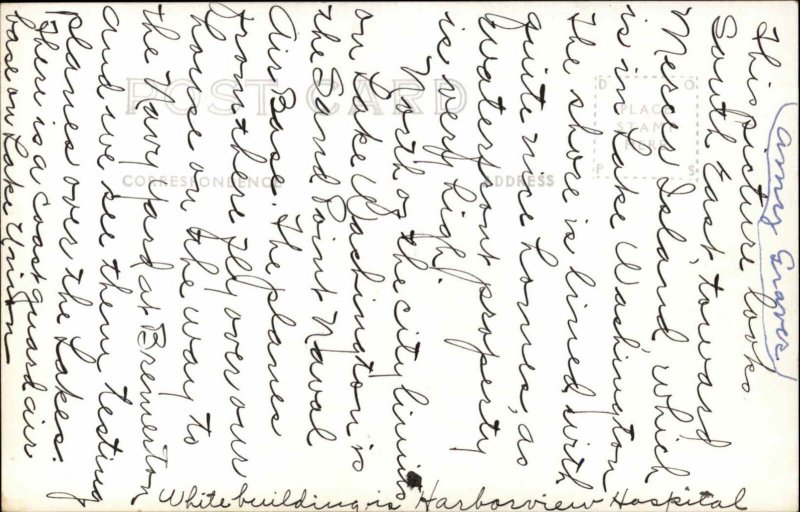 This picture looks
South East, toward
Mercer Island, which
is in Lake Washington
The shore is lined with
quite nice homes, as
waterfront property
is very high.
North of the city limits
on Lake Washington is
the Sand Point Naval
Air Base. The planes
from there fly over our
house on the way to
the Navy Yard at Bremerton
and we see them testing
planes over the Lakes.
There is a coast guard air
base on Lake Union
White building is Harborview Hospital
Graves
POST CARD
CORRESPONDENCE
ADDRESS
PLACE
STAMP
HERE
D O
P S